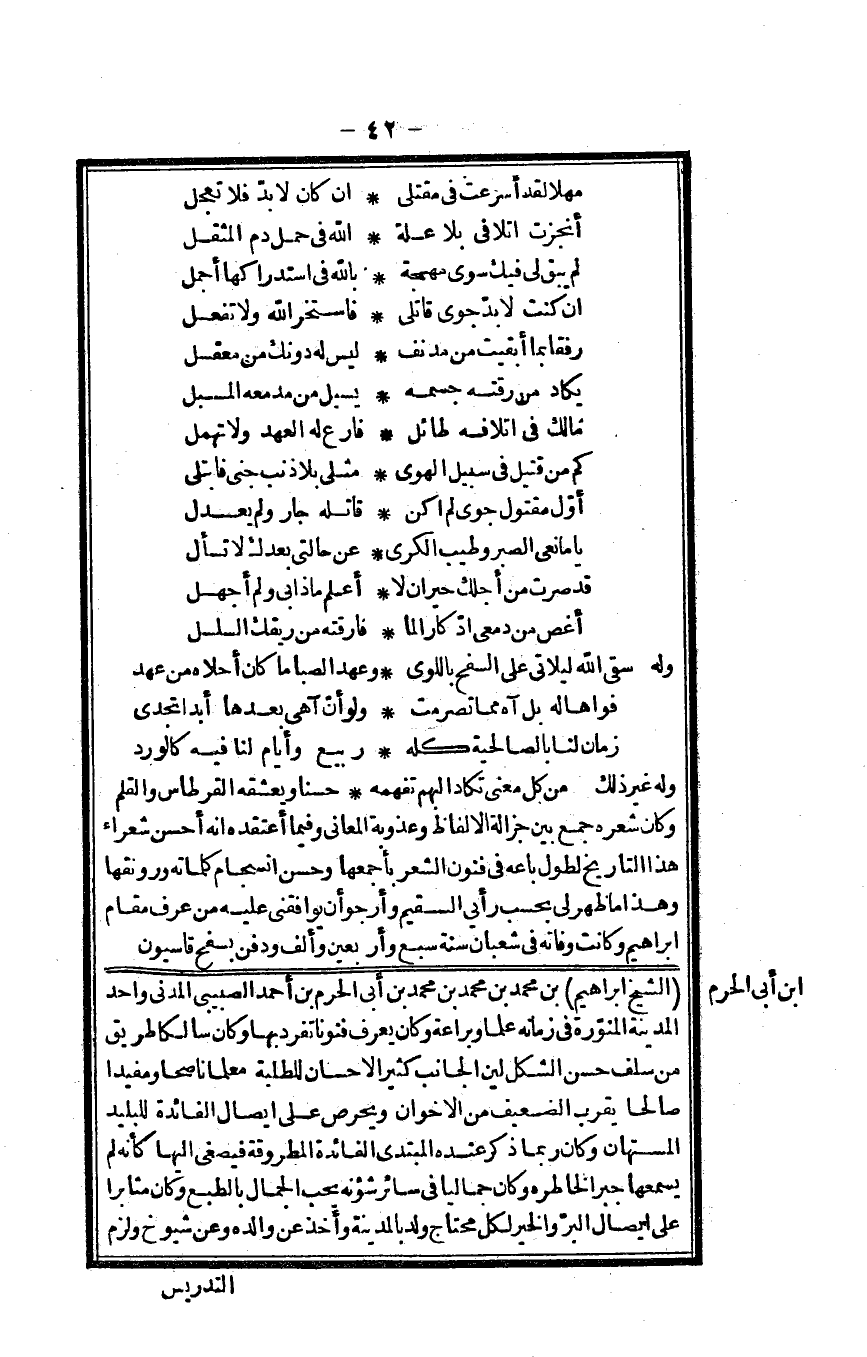 - ٤٢ -
مهلا لقد أسرعت فى مقتلى * ان كان لا بدّ فلا تعجل
أنجزت اتلافى بلا علة * الله فى حمل دم المثقل
لم يبق لى فيك سوى مهجة * بالله فى استدراكها أجمل
ان كنت لا بدّ جوى قاتلى * فاستخر الله ولا تفعل
رفقا بما أبقيت من مدنف * ليس له دونك من معقل
يكاد من رقته جسمه * يسيل من مدمعه المسبل
مالك فى اتلافه طائل * فارع له العهد ولا تهمل
كم من قتيل فى سبيل الهوى * مثلى بلا ذنب جنى فابتلى
أوّل مقتول جوى لم اكن * قاتله جار ولم يعدل
يا مانعى الصبر وطيب الكرى * عن حالتى بعدك لا تسأل
قد صرت من أجلك حيران لا * أعلم ماذا بى ولم أجهل
أغص من دمعى ادّ كارا لما * فارقته من ريقك السلسل
وله سقى الله ليلاتى على السفح باللوى * وعهد الصبا ما كان أحلاه من عهد
فواها له بل آه مما تصرمت * ولو أن آهى بعدها أبدا تجدى
زمان لنا بالصالحية كله * ربيع وأيام لنا فيه كالورد
وله غير ذلك من كل معنى تكاد البهم تفهمه * حسنا ويعشقه القرطاس والقلم
وكان شعره جمع بين جزالة الالفاظ وعذوبة المعانى وفيما أعتقده انه أحسن شعراء
هذا التاريخ لطول باعه فى فنون الشعر بأجمعها وحسن انسجام كلماته ورونقها
وهذا ما ظهر لى بحسب رأيى السقيم وأرجو أن يوافقنى عليه من عرف مقام
ابراهيم وكانت وفاته فى شعبان سنة سبع وأربعين وألف ودفن بسفح قاسيون
ابن أبى الحرم
(الشيخ ابراهيم) بن محمد بن محمد بن محمد بن أبى الحرم بن أحمد الصبيبى المدنى واحد
المدينة المنوّرة فى زمانه علما وبراعة وكان يعرف فنونا تفرد بها وكان سالكا طريق
من سلف حسن الشكل لين الجانب كثير الاحسان للطلبة معلما ناصحا ومفيدا
صالحا يقرب الضعيف من الاخوان ويحرص على ايصال الفائدة للبليد
المستهان وكان ربما ذكر عنده المبتدى الفائدة المطروقة فيصغى اليها كأنه لم
يسمعها جبرا لخاطره وكان جماليا فى سائر شؤنه يحب الجمال بالطبع وكان مثابرا
على ايصال البرّ والخير لكل محتاج ولد بالمدينة وأخذ عن والده وعن شيوخ ولزم
التدريس